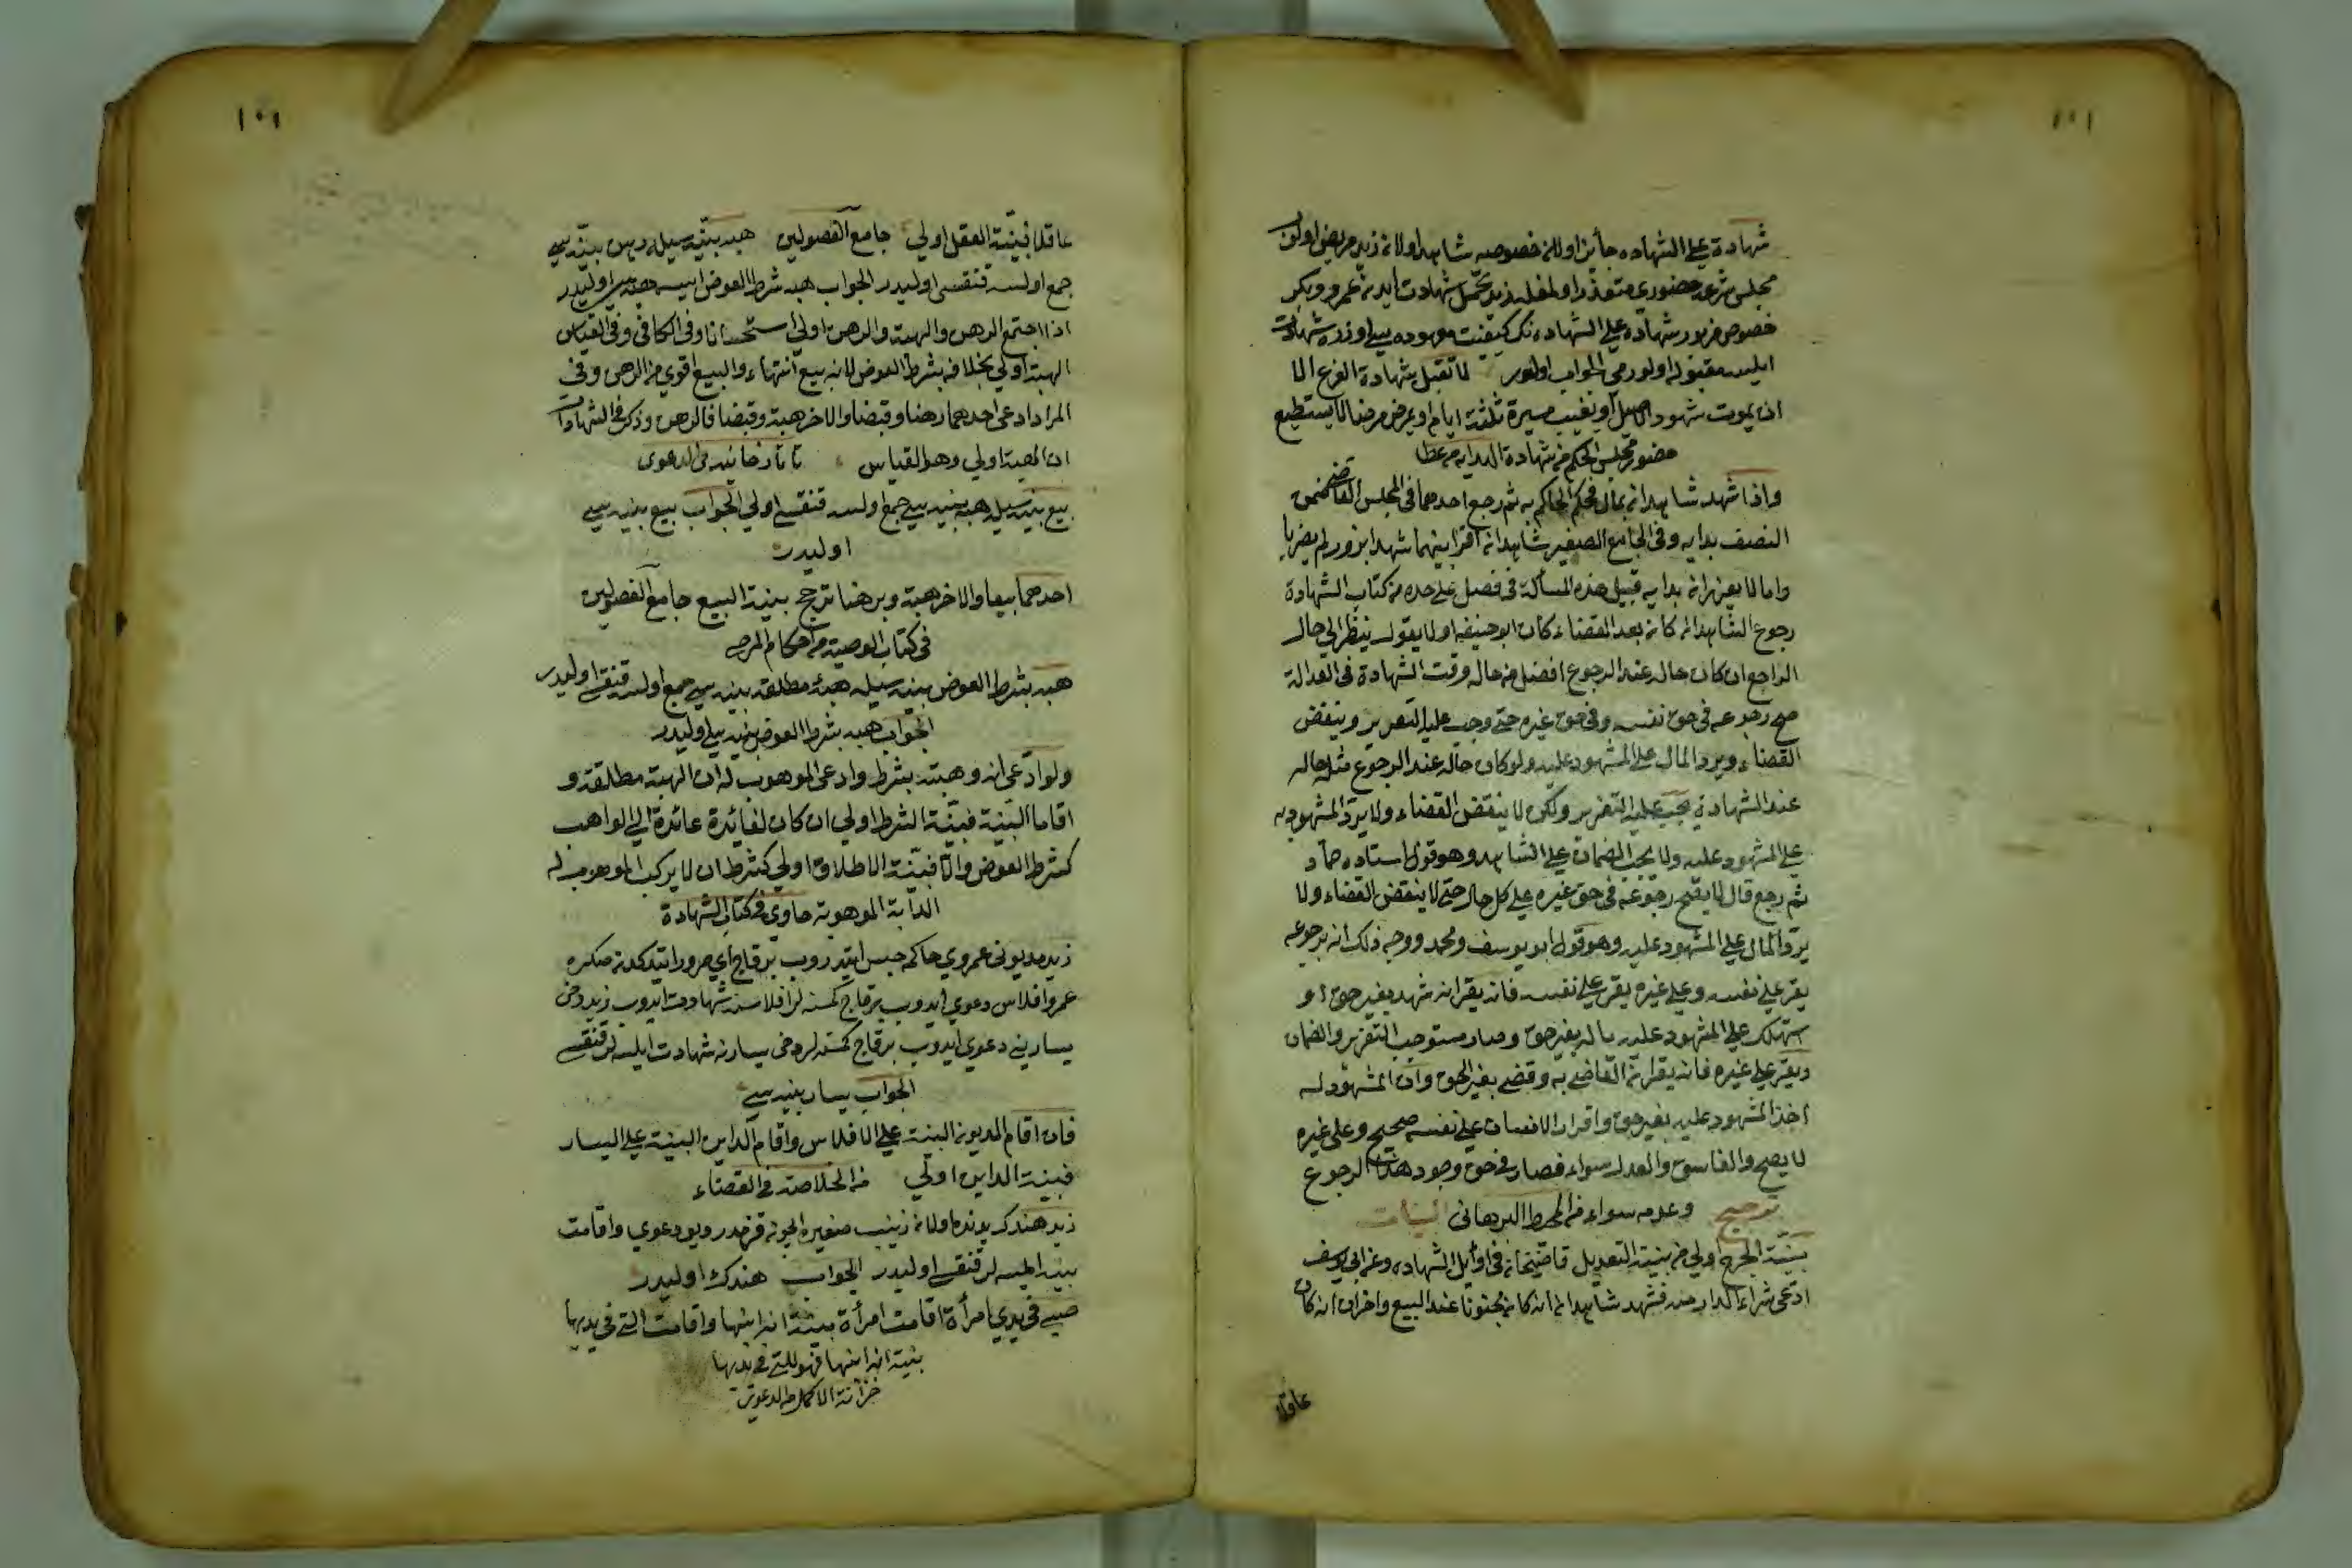 ١٠١
شهادة على الشهاده جائز اولان خصوصه شاهد اولان زيد مريض اولوب
مجلس شرعه حضورى متعذر اولمغله زيد تحمل شهادت ايدن عمرو وبكر
خصوص مزبور شهاده على الشهاده نك كيفيت معهوده سى اوزره شهادت
ايلسه مقبوله اولورمى الجواب اولور لا تقبل شهادة الفرع الا
ان يموت شهود الاصل او تغيب مسيرة ثلثة ايام او يمرض مرضا لا يستطيع
حضور مجلس الحكم من شهادة البدايه
واذا شهد شاهدان بمال فحكم الحاكم به ثم رجع احدهما فى المجلس القاضى ضمن
النصف بدايه وفى الجامع الصغير شاهدان اقرا بينهما شهدا بزور لم يضربا
واما لا يعزران بدايه قبيل هذه المسألة فى فصل على حده من كتاب الشهادة
رجوع الشاهد ان كان بعد القضاء كان ابو حنيفه اولا يقول ينظر الى حال
الراجع ان كان حاله عند الرجوع افضل من حاله وقت الشهادة فى العدالة
صح رجوعه فى حق نفسه وفى حق غيره حتى وجب عليه التعزير وينقض
القضاء ويرد المال على المشهود عليه ولو كان حاله عند الرجوع مثل حاله
عند الشهادة يجب عليه التعزير ولكن لا ينقض القضاء ولا يرد المشهود به
على المشهود عليه ولا يجب الضمان على الشاهد وهو قول استاده حماد
ثم رجع قال لا يصح رجوعه فى حق غيره على كل حال حتى لا ينقض القضاء ولا
يرد المال على المشهود عليه وهو قول ابو يوسف ومحمد ووجه ذلك انه برجوعه
يقر على نفسه وعلى غيره يقر على نفسه فانه يقر انه شهد بغير حق او
استهلك على المشهود عليه ماله بغير حق وصار مستوجب التعزير والضمان
ويقر على غيره فانه يقر ان القاضى به وقضى بغير الحق وان المشهود له
اخذ المشهود عليه بغير حق واقرار الانسان على نفسه صحيح وعلى غيره
لا يصح والفاسق والعدل سواء فصار فى حق وجود هذا الرجوع
وعدمه سواء من المحيط البرهانى ترجيح البينات
بينة الجرح اولى من بينة التعديل قاضيخان فى اوائل الشهاده وعن ابى يوسف
ادعى شراء الدار منه فشهد شاهدان انه كان مجنونا عند البيع واخران انه كان
عاقلا
١٠١
عاقلا فبينة العقل اولى جامع الفصولين هبه بينه سيله رهن بينه سى
جمع اولسه قنقسى اوليدر الجواب هبه شرط العوض ايسه هبه سى اوليدر
اذا اجتمع الرهن والهبة والرهن اولى استحسانا وفى الكافى وفى القياس
الهبة اولى بخلافه بشرط العوض لانه بيع انتهاء والبيع اقوى من الرهن وفى
المراد ادعى احدهما رهنا وقبضا والاخر هبة وقبضا فالرهن وذكر فى الشهادات
ان الهبة اولى وهو القياس تاتارخانيه فى الدعوى
بيع بينه سيله هبه بينه سى جمع اولسه قنقسى اولى الجواب بيع بينه سى
اوليدر
احدهما بيعا والاخر هبة وبرهنا ترجح بينة البيع جامع الفصولين
فى كتاب الوصية من احكام المرضى
هبه بشرط العوض بينه سيله هبۀ مطلقه بينه سى جمع اولسه قنقسى اوليدر
الجواب هبه بشرط العوض بينه سى اوليدر
ولو ادعى انه وهبته بشرط وادعى الموهوب له ان الهبة مطلقة و
اقاما البينة فبينة الشرط اولى ان كان لفائدة عائدة الى الواهب
كشرط العوض والا فبينة الاطلاق اولى كشرط ان لا يركب الموهوب له
الدابة الموهوبة حاوى فى كتاب الشهادة
زيد مديونى عمروى حاكمه حبس ايتدروب برقاچ آى مرور ايتدكدن صكره
عمرو افلاس دعوى ايدوب برقاچ كمسنه لر افلاسنه شهادت ايدوب زيد دخى
يسارينى دعوى ايدوب برقاچ كمسنه لر دخى يسارنه شهادت ايلسه لر قنقسى
الجواب يسار بينه سى
فان اقام المديون البينة على الافلاس واقام الداين البينة على اليسار
فبينة الداين اولى من الخلاصة فى القضاء
زيد هندك يدنده اولان زينب صغيره ايچون قزمدر ديو دعوى واقامت
بينه ايلسه لر قنقسى اوليدر الجواب هندك اوليدر
صبى فى يدى امرأة اقامت امرأة بينة انه ابنها واقامت التى فى يديها
بينة انه ابنها فهو للتى فى يديها
خزانة الاكمل من الدعوى